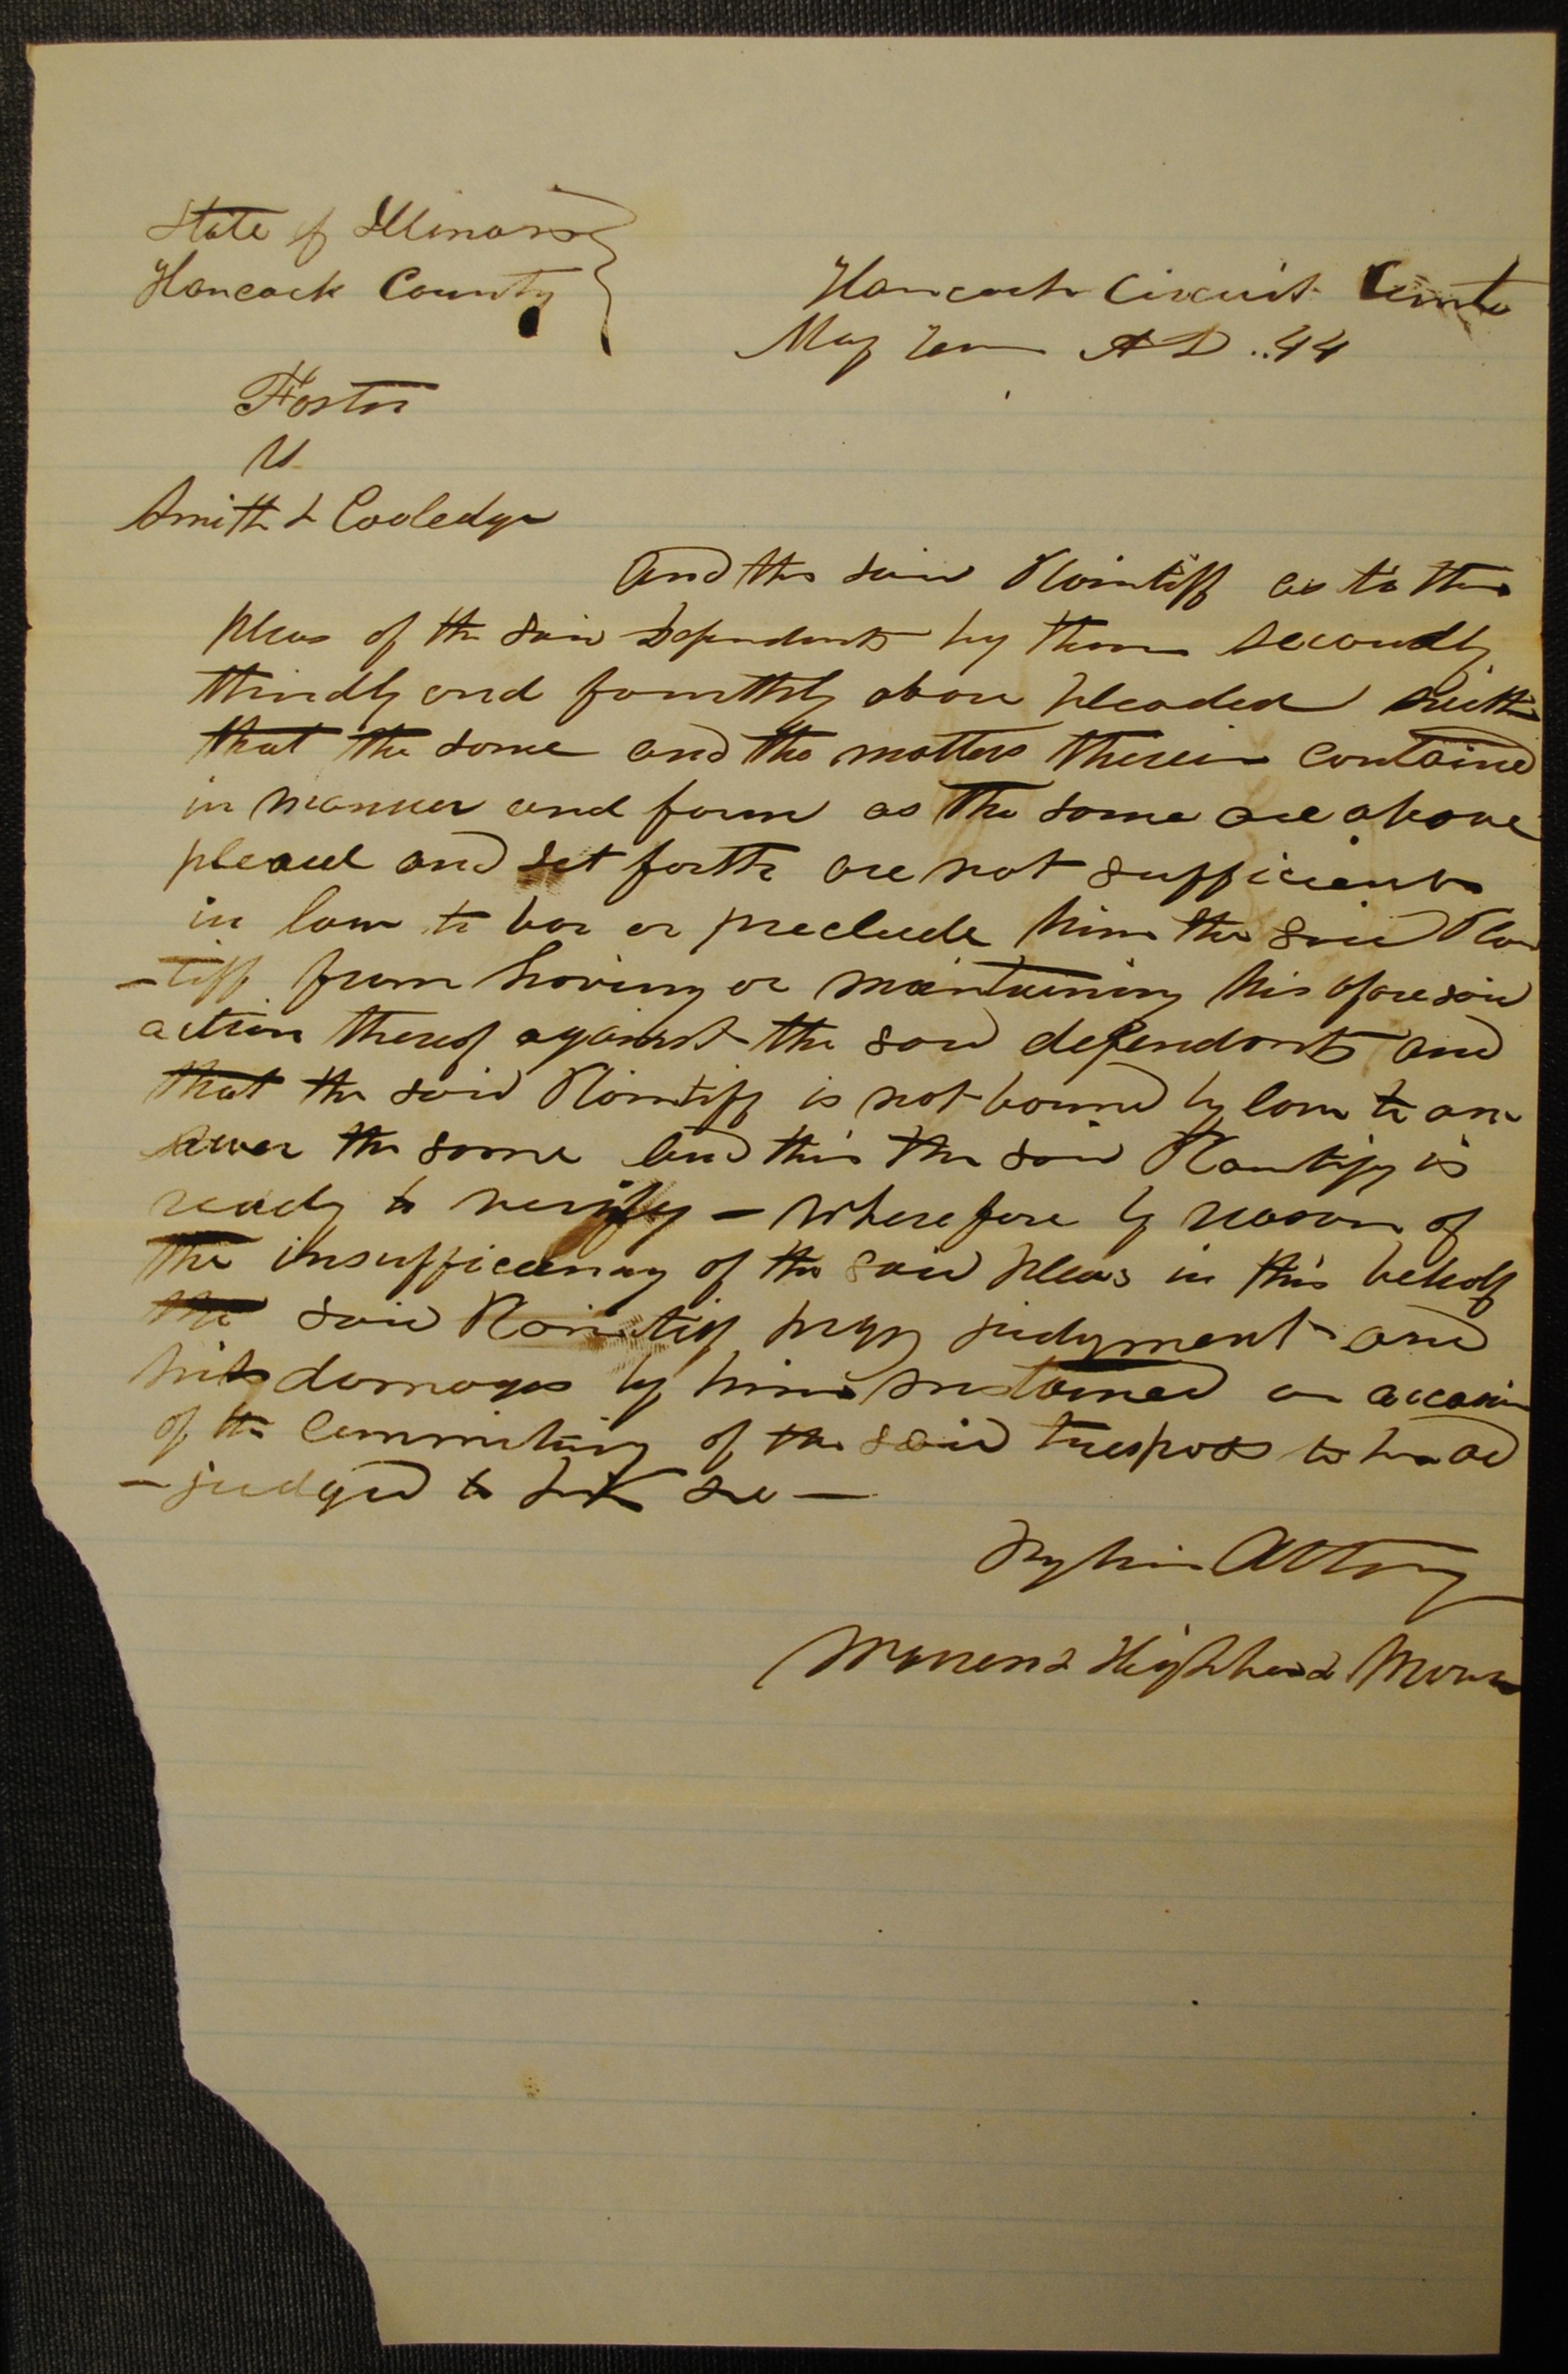 State of Illinois
Hancock County
Hancock Circuit Court
May Term A D. 44
Foster
vs
Smith & Cooledge
And the said Plaintiff as to the
pleas of the said Defendants by them secondly
thirdly and fourthly above pleaded saith
that the same and the matters therein contained
in manner and form as the same are above
plead and set forth are not sufficient
in law to bar or preclude him the said Plain
-tiff from having or maintaining his aforesaid
action thereof against the said defendants and
that the said Plaintiff is not bound by law to an
swer the same And this the said Plaintiff is
ready to verify — Wherefore by reason of
the insufficiency of the said pleas in this behalf
the said Plaintiff prays judgment and
his damages by him sustained on occasion
of the committing of the said trespass to be ad
-judged to him &c —
By his Atty
Warren & Highbee & Morrison